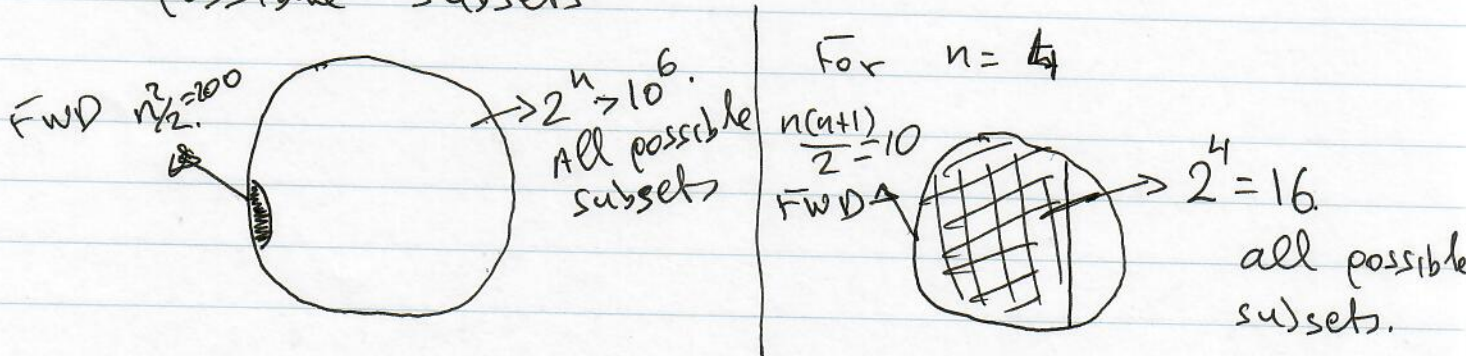 possible subsets
FWD n²/2=200
→ 2ⁿ > 10⁶.
All possible
subsets
For n = 4
n(n+1)/2 = 10
FWD
→ 2⁴ = 16.
all possible
subsets.